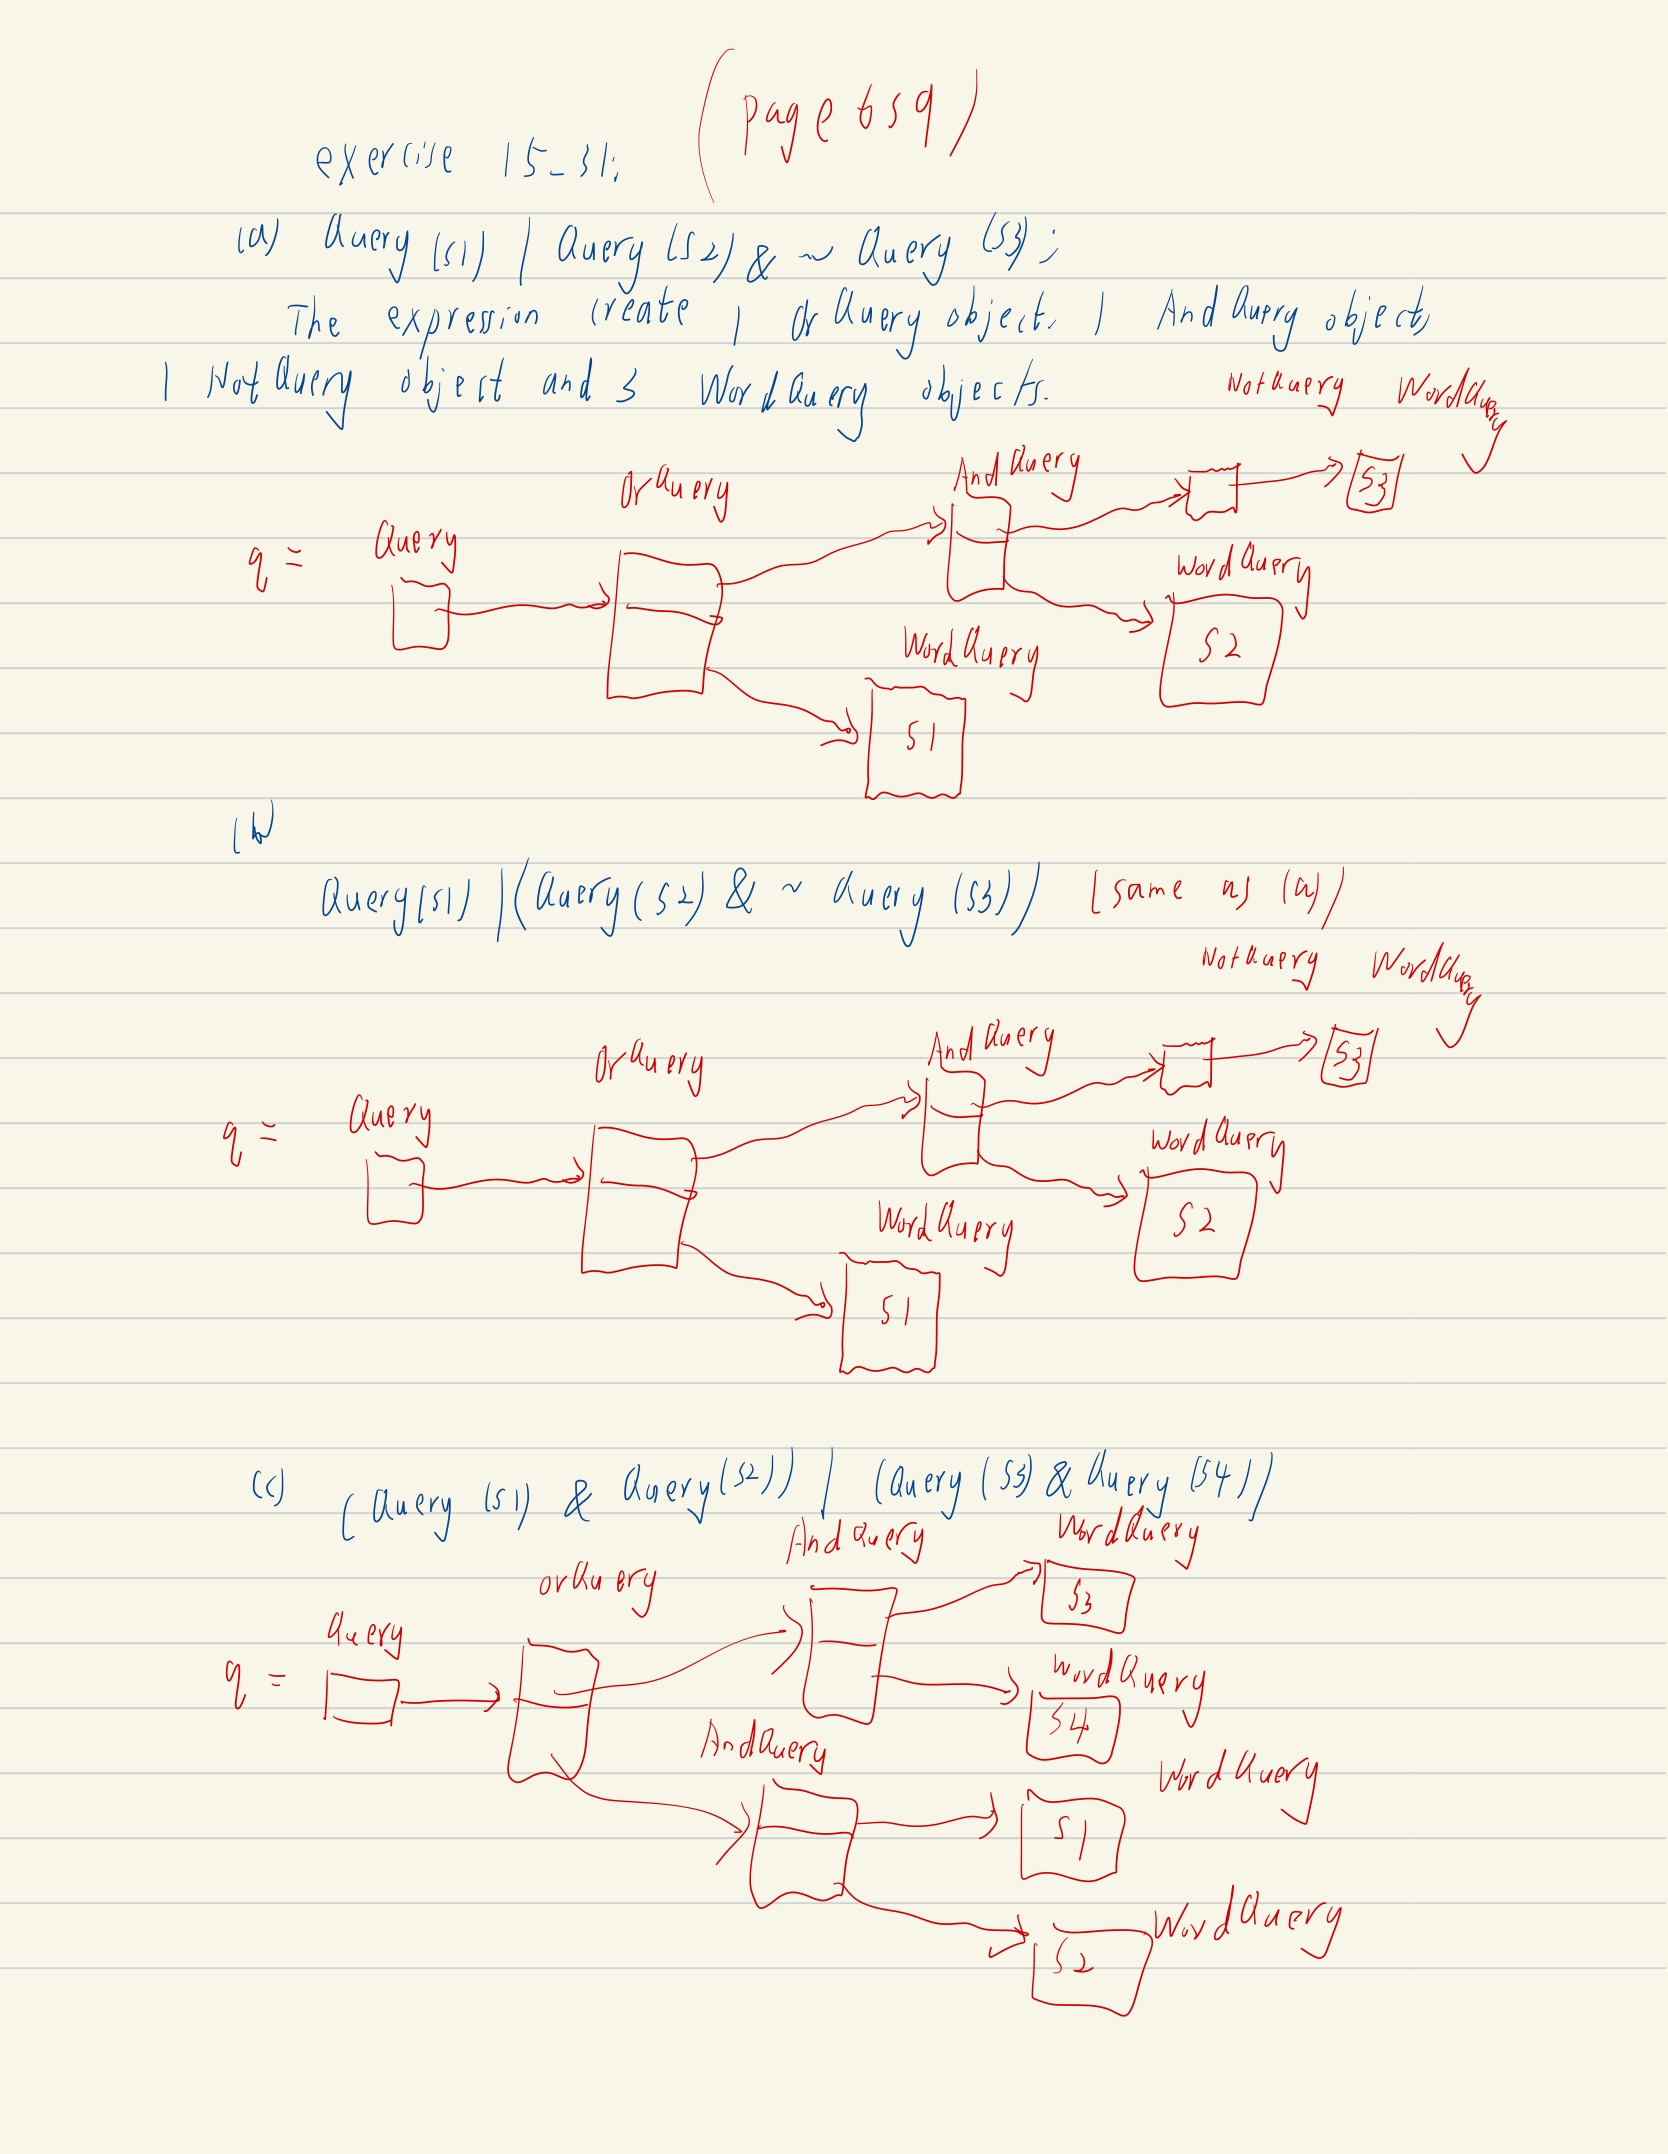 (page 659)
exercise 15-31:
(a) Query (s1) | Query (s2) & ~ Query (s3) ;
The expression create 1 OrQuery object, 1 AndQuery object,
1 NotQuery object and 3 WordQuery objects.
NotQuery WordQuery
OrQuery AndQuery S3
q = Query
WordQuery
WordQuery S2
S1
(b)
Query(s1) | (Query(s2) & ~ Query (s3)) (same as (a))
NotQuery WordQuery
OrQuery AndQuery S3
q = Query
WordQuery
WordQuery S2
S1
(c) (Query (s1) & Query(s2)) | (Query (s3) & Query (s4))
AndQuery WordQuery
orQuery S3
Query
q = WordQuery
S4
AndQuery WordQuery
S1
WordQuery
S2